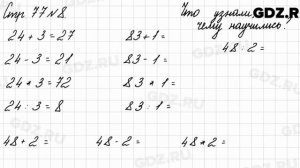 Стр 77 № 8.
24 + 3 = 27
24 - 3 = 21
24 * 3 = 72
24 : 3 = 8
83 + 1 =
83 - 1 =
83 * 1 =
83 : 1 =
Что узнали.
чему научились?
48 : 2 =
48 + 2 =
48 - 2 =
48 * 2 =
GDZ.RU